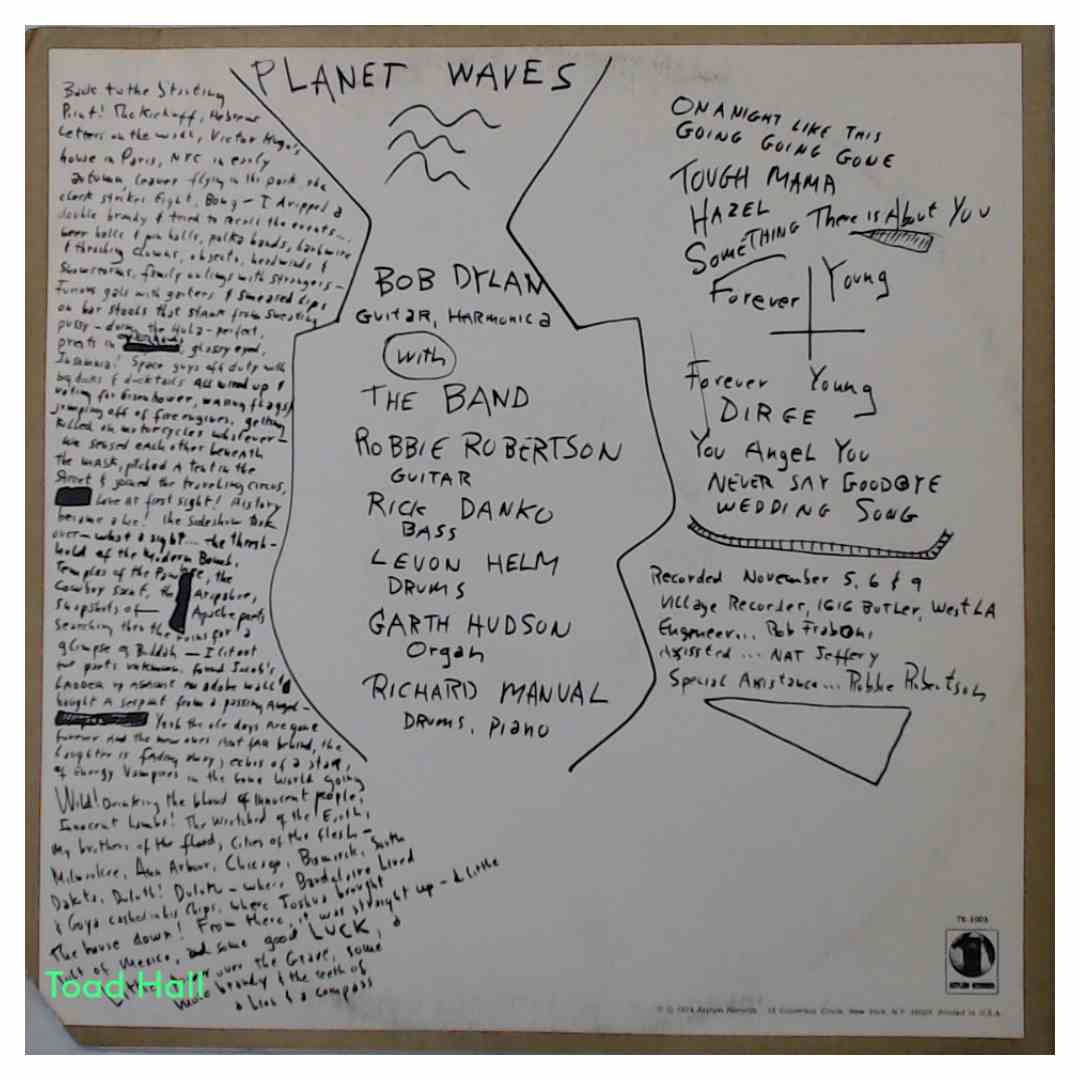 PLANET WAVES
Back to the Starting
Point! The Kickoff, Hebrew
Letters on the wall, Victor Hugo's
house in Paris, NYC in early
autumn, leaves flying in the park, the
clock strikes Eight, Bong - I dropped a
double brandy & tried to recall the events...
beer halls & pin balls, polka bands, barbwire
& thrashing clowns, objects, headwinds &
Snowstorms, family outings with strangers -
Furious gals with garters & smeared lips
on bar stools that stank from sweating
pussy - doing the Hula - perfect,
priests in glossy eyed,
Insomnia! Space guys off duty with
big dicks & ducktails All wired up &
voting for Eisenhower, waving flags &
jumping off of fire engines, getting
killed on motorcycles whatever -
We sensed each other beneath
the mask, pitched A tent in the
Street & joined the traveling circus,
Love at first sight! History
became a lie! the sideshow took
over - what a sight... the thresh-
hold of the Modern Bomb,
Temples of the Pawnee, the
Cowboy Saint, the Arapahoe,
Snapshots of Apache poets
Searching thru the ruins for a
glimpse of Buddah - I lit out
for parts unknown, found Jacob's
LADDER up against an adobe wall &
bought A serpent from a passing Angel -
Yeah the ole days Are gone
forever And the new ones Aint far behind, the
Laughter is fading away, echos of a star,
of Energy Vampires in the Gone World going
Wild! Drinking the blood of innocent people,
Innocent lambs! The Wretched of the Earth,
My brothers of the flood, Cities of the flesh -
Milwaukee, Ann Arbour, Chicago, Bismarck, South
Dakota, Duluth! Duluth - where Baudelaire Lived
& Goya cashed in his Chips, where Joshua brought
The house down! From there, it was straight up - a little
jolt of Mexico, and some good LUCK, a
little power over the Grave, some
more brandy & the teeth of
a lion & a compass
BOB DYLAN
GUITAR, HARMONICA
with
THE BAND
ROBBIE ROBERTSON
GUITAR
RICK DANKO
BASS
LEVON HELM
DRUMS
GARTH HUDSON
Organ
RICHARD MANUAL
DRUMS, PIANO
ON A NIGHT LIKE THIS
GOING GOING GONE
TOUGH MAMA
HAZEL
SOMETHING There is About You
Forever Young
Forever Young
DIRGE
You Angel You
NEVER SAY GOODBYE
WEDDING SONG
Recorded November 5, 6 & 9
Village Recorder, 1616 BUTLER, West LA
Engineer... Rob Fraboni
Assissted ... NAT Jeffery
Special Assistance... Robbie Robertson
7E-1003
ASYLUM RECORDS
℗ © 1974 Asylum Records 15 Columbus Circle, New York, N.Y. 10023 Printed in U.S.A.
Toad Hall